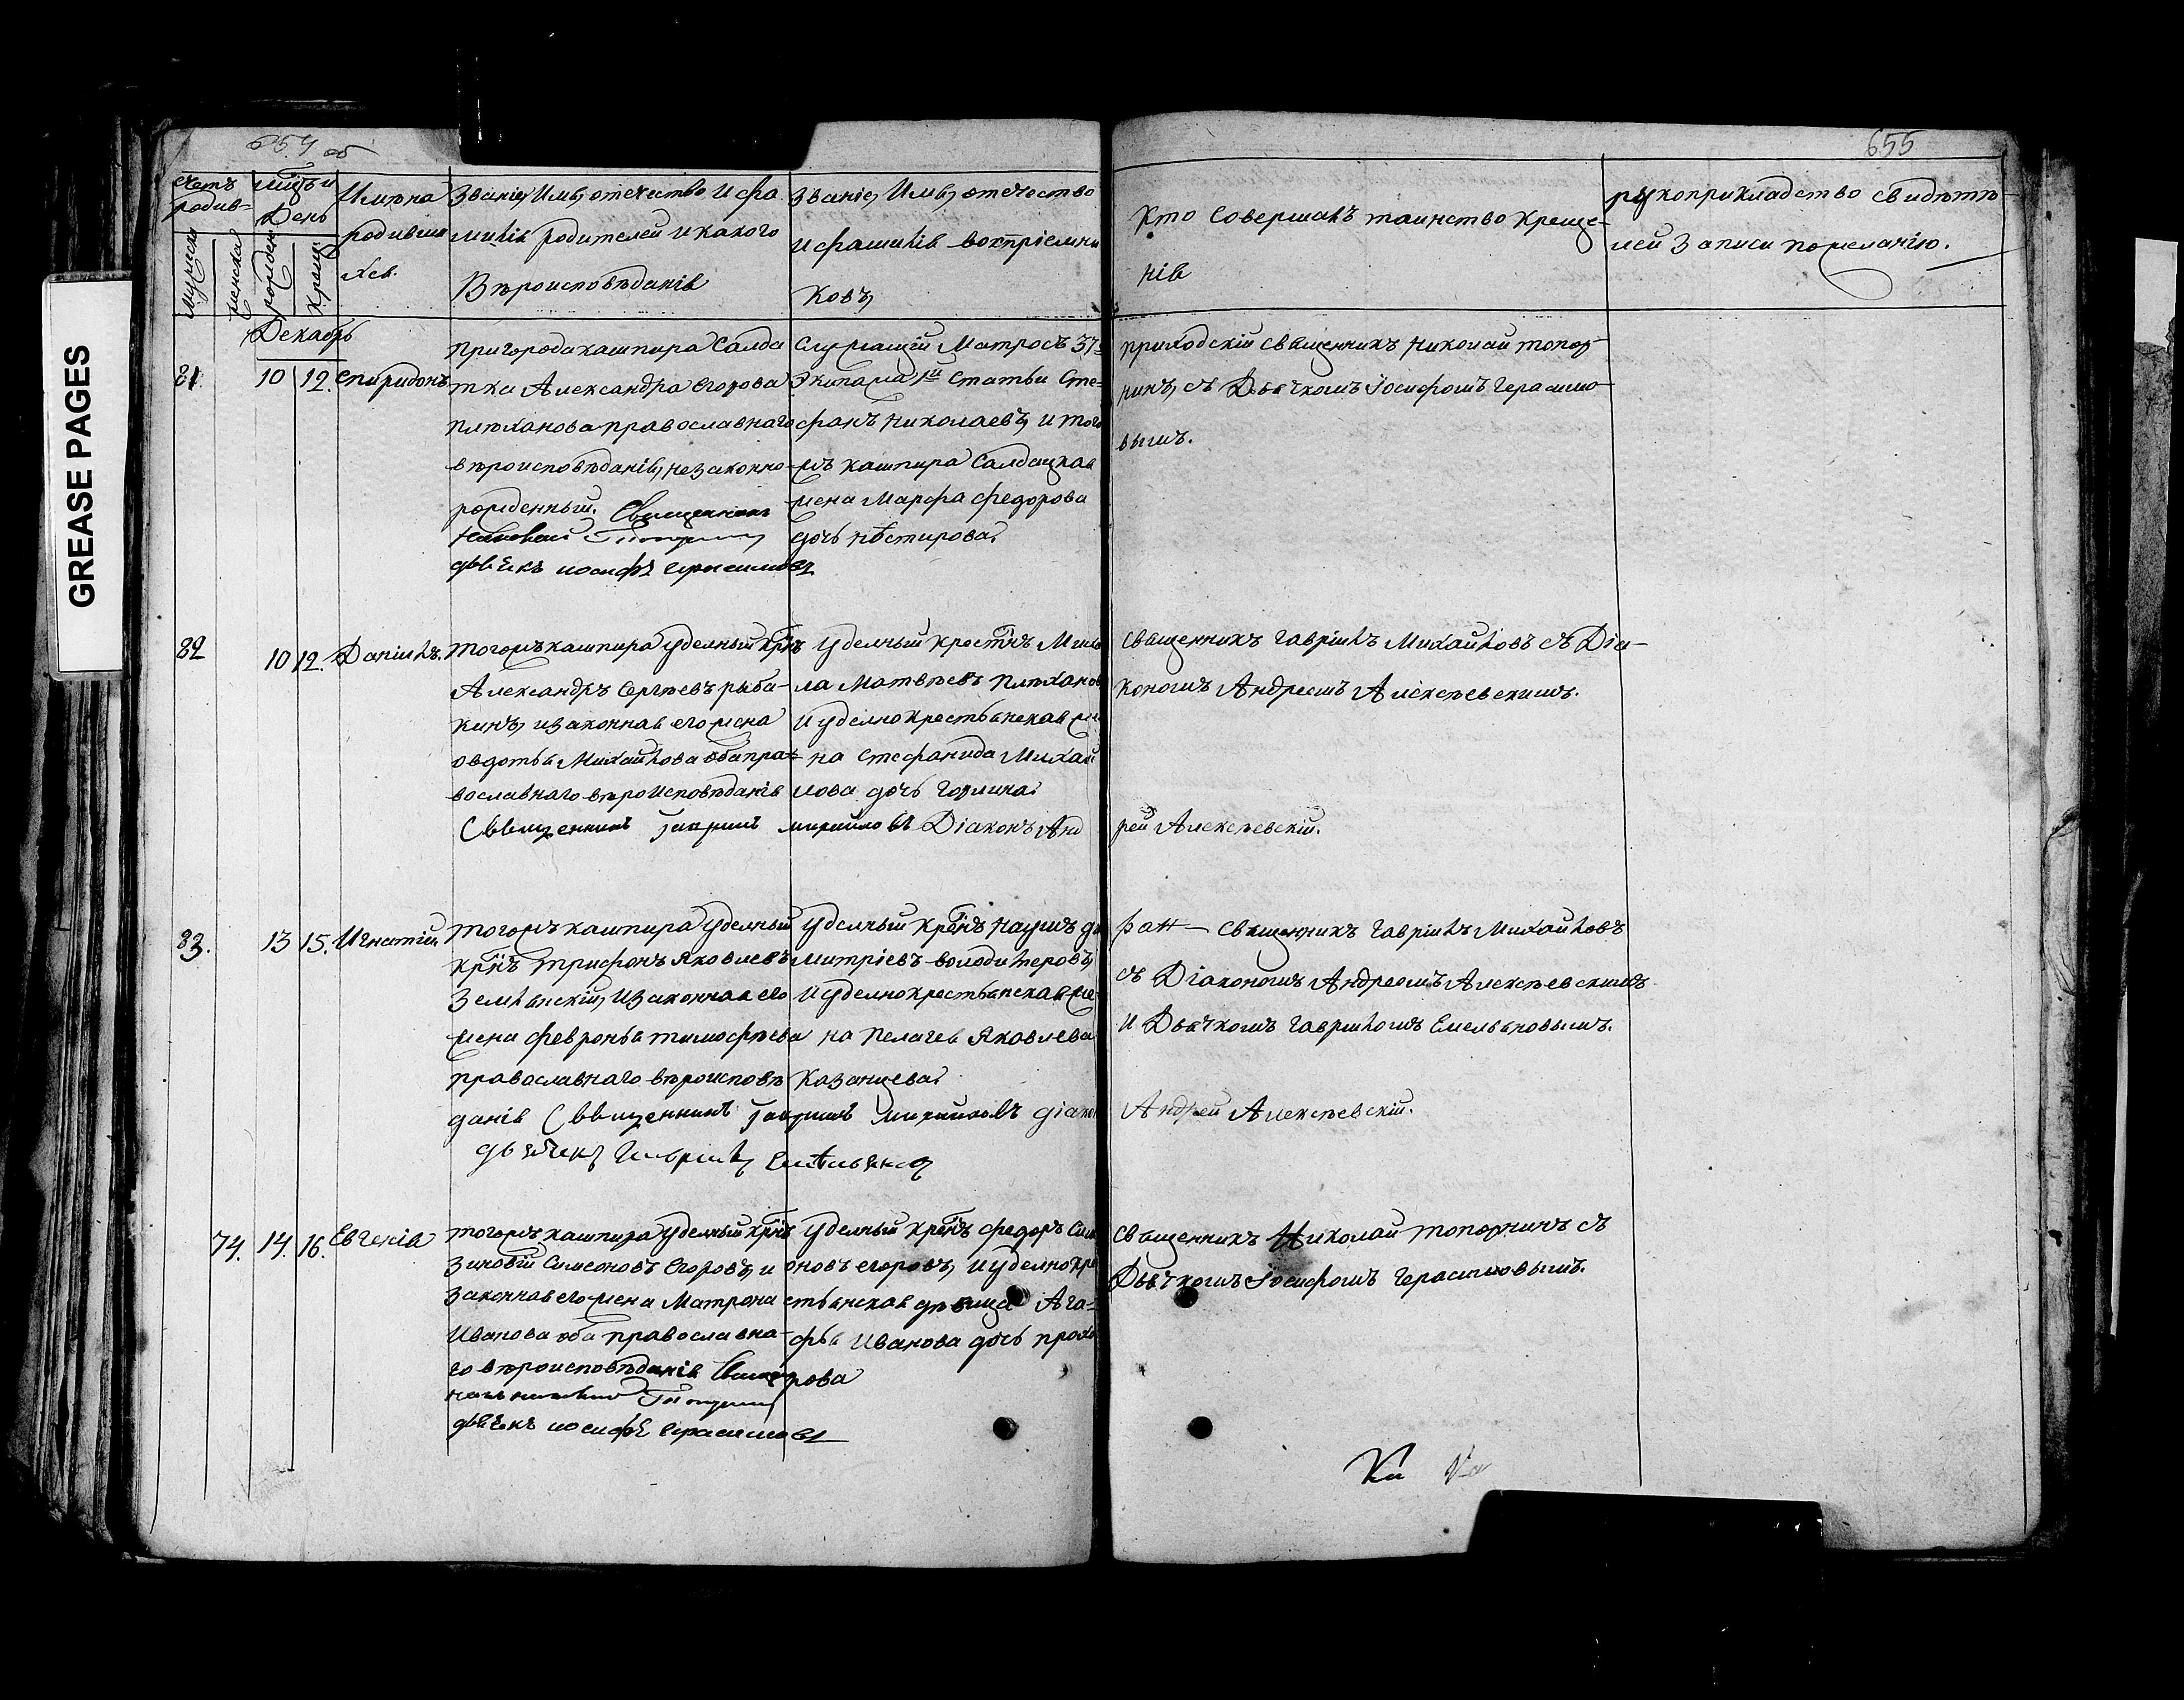 GREASE PAGES
654 об
655
Счетъ родив-
Мужеска
женска
мцъ и День
рожден
Крещ.
Имяна
родивши
хся.
Званіе, Имя, отечество, И фа
милія родителей и какого
Вѣроисповѣданія
Званіе, Имя, отечество
и фамилія воспріемни
ковъ,
Кто Совершалъ таинство Креще-
нія
рукоприкладство свидѣтѣ-
лей Записи пожеланію.
Декабрь
81.
10
12.
Спиридонъ
пригорода кашпира Салда
тка Александра Егорова
плѣханова православнаго
вѣроисповѣданія, незаконно-
рожденный. Священникъ
Николай Топорнинъ
дьячекъ иосифъ Герасимовъ
Служащій Матросъ 37го
Экипажа 1й Статьи Сте-
фанъ Николаевъ, и того
жъ кашпира Салдацкая
жена Марфа Федорова
дочь
приходскій священникъ Николай топор-
нинъ, съ Дьячкомъ Іосифомъ Герасимо-
вымъ.
82
10
12.
Даніилъ.
Тогожъ кашпира Уделный крнъ
Александръ Сергѣевъ рыба-
кинъ, и законная его жена
овдотья Михайлова оба пра-
вославнаго вѣроисповѣданія
Священникъ Гавріилъ Михайловъ Діаконъ Анд
рей Алексѣевскій.
Уделный крестнъ Михаи
ла Матвѣевъ плѣханов
И уделнокрестьянская же
на Стефанида Михай
лова дочь
Священникъ Гавріилъ Михайловъ съ Діа-
кономъ Андреемъ Алексѣевскимъ.
83.
13
15.
Игнатій.
Тогожъ кашпира Уделный
крнъ Трифонъ Яковлевъ
Землянскій, И законная его
жена Февронья тимофѣева
православнаго вѣроисповѣ
данія Священникъ Гавріилъ Михайловъ діакон
Андрей Алексѣевскій.
дьячекъ Гавріилъ Емельянов
Уделный крснъ Наумъ ди
митріевъ володимеровъ,
И уделнокрестьянская же
на Пелагея Яковлева
Казанцева.
Священникъ Гавріилъ Михайловъ
съ Діакономъ Андреемъ Алексѣевскимъ
И Дьячкомъ Гавріиломъ Емельяновымъ.
74.
14.
16.
Евгенія
Тогожъ кашпира Уделный крнъ
Зиновій Симеоновъ Егоровъ, и
законная его жена Матрона
Иванова оба православна-
го вѣроисповѣданія Священ
никъ николай Топорнинъ
дьячекъ иосифъ Герасимовъ
Уделный крснъ Федоръ Сим
оновъ егоровъ, И уделнокре
стьянская дѣвица Ага-
фья Иванова дочь прохо
рова
Священникъ Николай топорнинъ съ
Дьячкомъ Іосифомъ Герасимовымъ.